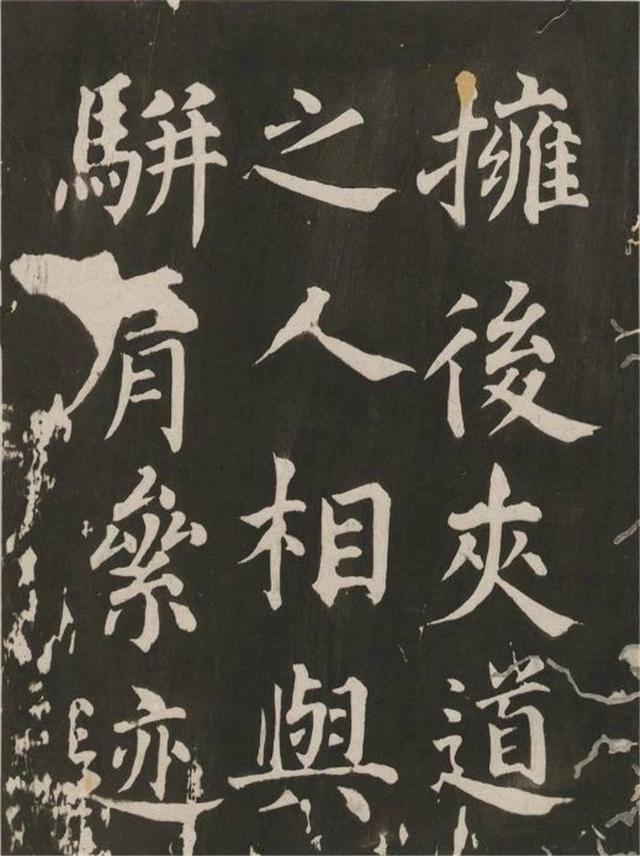 擁後夾道
之人相與
駢肩絫迹